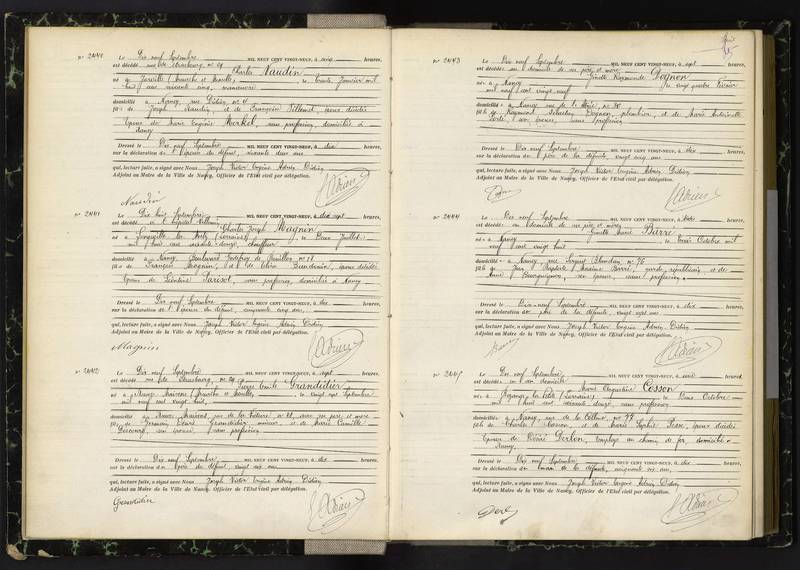 N° 2440 Le Dix neuf Septembre MIL NEUF CENT VINGT-NEUF, à heures,
est décédé rue de Strasbourg, n° 69 Charles Naudin
né à Jarville (Meurthe et Moselle), le trente Janvier mil
huit cent soixante cinq, manœuvre
domicilié à Nancy, rue n° 4
fils de Joseph Naudin, et de Françoise époux décédés
Époux de Marie Eugénie Merkel, sans profession, domiciliée à
Nancy
Dressé le Dix neuf Septembre MIL NEUF CENT VINGT-NEUF, à dix heures,
sur la déclaration de l'épouse du défunt, soixante deux ans
qui, lecture faite, a signé avec Nous Joseph Victor Eugène Adrien Didion
Adjoint au Maire de la Ville de Nancy, Officier de l'Etat civil par délégation.
Naudin
Adrien
N° 2441 Le Dix huit Septembre MIL NEUF CENT VINGT-NEUF, à dix sept heures,
est décédé à l'hôpital Charles Joseph Magnin
né à le Deux Juillet
mil huit cent soixante douze, chauffeur
domicilié à Nancy, Boulevard Godefroy de Bouillon n° 18
fils de François Magnin, et de époux décédés
Époux de Léontine Parisot, sans profession, domiciliée à Nancy
Dressé le Dix neuf Septembre MIL NEUF CENT VINGT-NEUF, à dix heures,
sur la déclaration de l'épouse du défunt, cinquante cinq ans
qui, lecture faite, a signé avec Nous Joseph Victor Eugène Adrien Didion
Adjoint au Maire de la Ville de Nancy, Officier de l'Etat civil par délégation.
Magnin
Adrien
N° 2442 Le Dix neuf Septembre MIL NEUF CENT VINGT-NEUF, à heures,
est décédé rue de Strasbourg, n° 69 Pierre Emile Grandidier
né à (Meurthe et Moselle), le vingt sept Septembre
mil neuf cent vingt huit,
domicilié à rue de n° 28, avec ses père et mère
fils de Germain Henri Grandidier mineur, et de Marie Camille
son épouse, sans profession
Dressé le Dix neuf Septembre MIL NEUF CENT VINGT-NEUF, à dix heures,
sur la déclaration du père du défunt, vingt six ans
qui, lecture faite, a signé avec Nous Joseph Victor Eugène Adrien Didion
Adjoint au Maire de la Ville de Nancy, Officier de l'Etat civil par délégation.
Grandidier
Adrien
N° 2443 Le Dix neuf Septembre MIL NEUF CENT VINGT-NEUF, à sept heures,
est décédée au domicile de ses père et mère Ginette Raymonde Pognon
née à Nancy le vingt quatre Février
mil neuf cent vingt neuf
domiciliée à Nancy, rue n° 30
fille de Raymond Sébastien Pognon, plombier, et de Marie Antoinette
son épouse, sans profession
Dressé le Dix neuf Septembre MIL NEUF CENT VINGT-NEUF, à dix heures,
sur la déclaration du père de la défunte, vingt cinq ans
qui, lecture faite, a signé avec Nous Joseph Victor Eugène Adrien Didion
Adjoint au Maire de la Ville de Nancy, Officier de l'Etat civil par délégation.
Adrien
N° 2444 Le Dix neuf Septembre MIL NEUF CENT VINGT-NEUF, à heures,
est décédée au domicile de ses père et mère Ginette Marie Barré
née à Nancy le trois Octobre mil
neuf cent vingt huit
domiciliée à Nancy, rue Sergent Blandan n° 76
fille de Jean Baptiste Maxime Barré, garde républicain et de
Bourguignon, son épouse, sans profession.
Dressé le Dix-neuf Septembre MIL NEUF CENT VINGT-NEUF, à dix heures,
sur la déclaration du père de la défunte, vingt sept ans
qui, lecture faite, a signé avec Nous Joseph Victor Eugène Adrien Didion
Adjoint au Maire de la Ville de Nancy, Officier de l'Etat civil par délégation.
Adrien
N° 2445 Le Dix neuf Septembre MIL NEUF CENT VINGT-NEUF, à heures,
est décédée en son domicile Marie Augustine Cosson
née à la Petite (Lorraine) le Deux Octobre
mil huit cent soixante douze, sans profession
domiciliée à Nancy, rue de la Colline, n° 77
fille de Charles Cosson, et de Marie Sophie époux décédés
Épouse de Désiré Derlon, employé au chemin de fer domicilié à
Nancy.
Dressé le Dix neuf Septembre MIL NEUF CENT VINGT-NEUF, à dix heures,
sur la déclaration du mari de la défunte, cinquante six ans
qui, lecture faite, a signé avec Nous Joseph Victor Eugène Adrien Didion
Adjoint au Maire de la Ville de Nancy, Officier de l'Etat civil par délégation.
Adrien